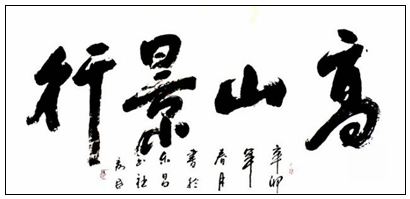 高山景行
辛卯
年
春月
書於
東昌